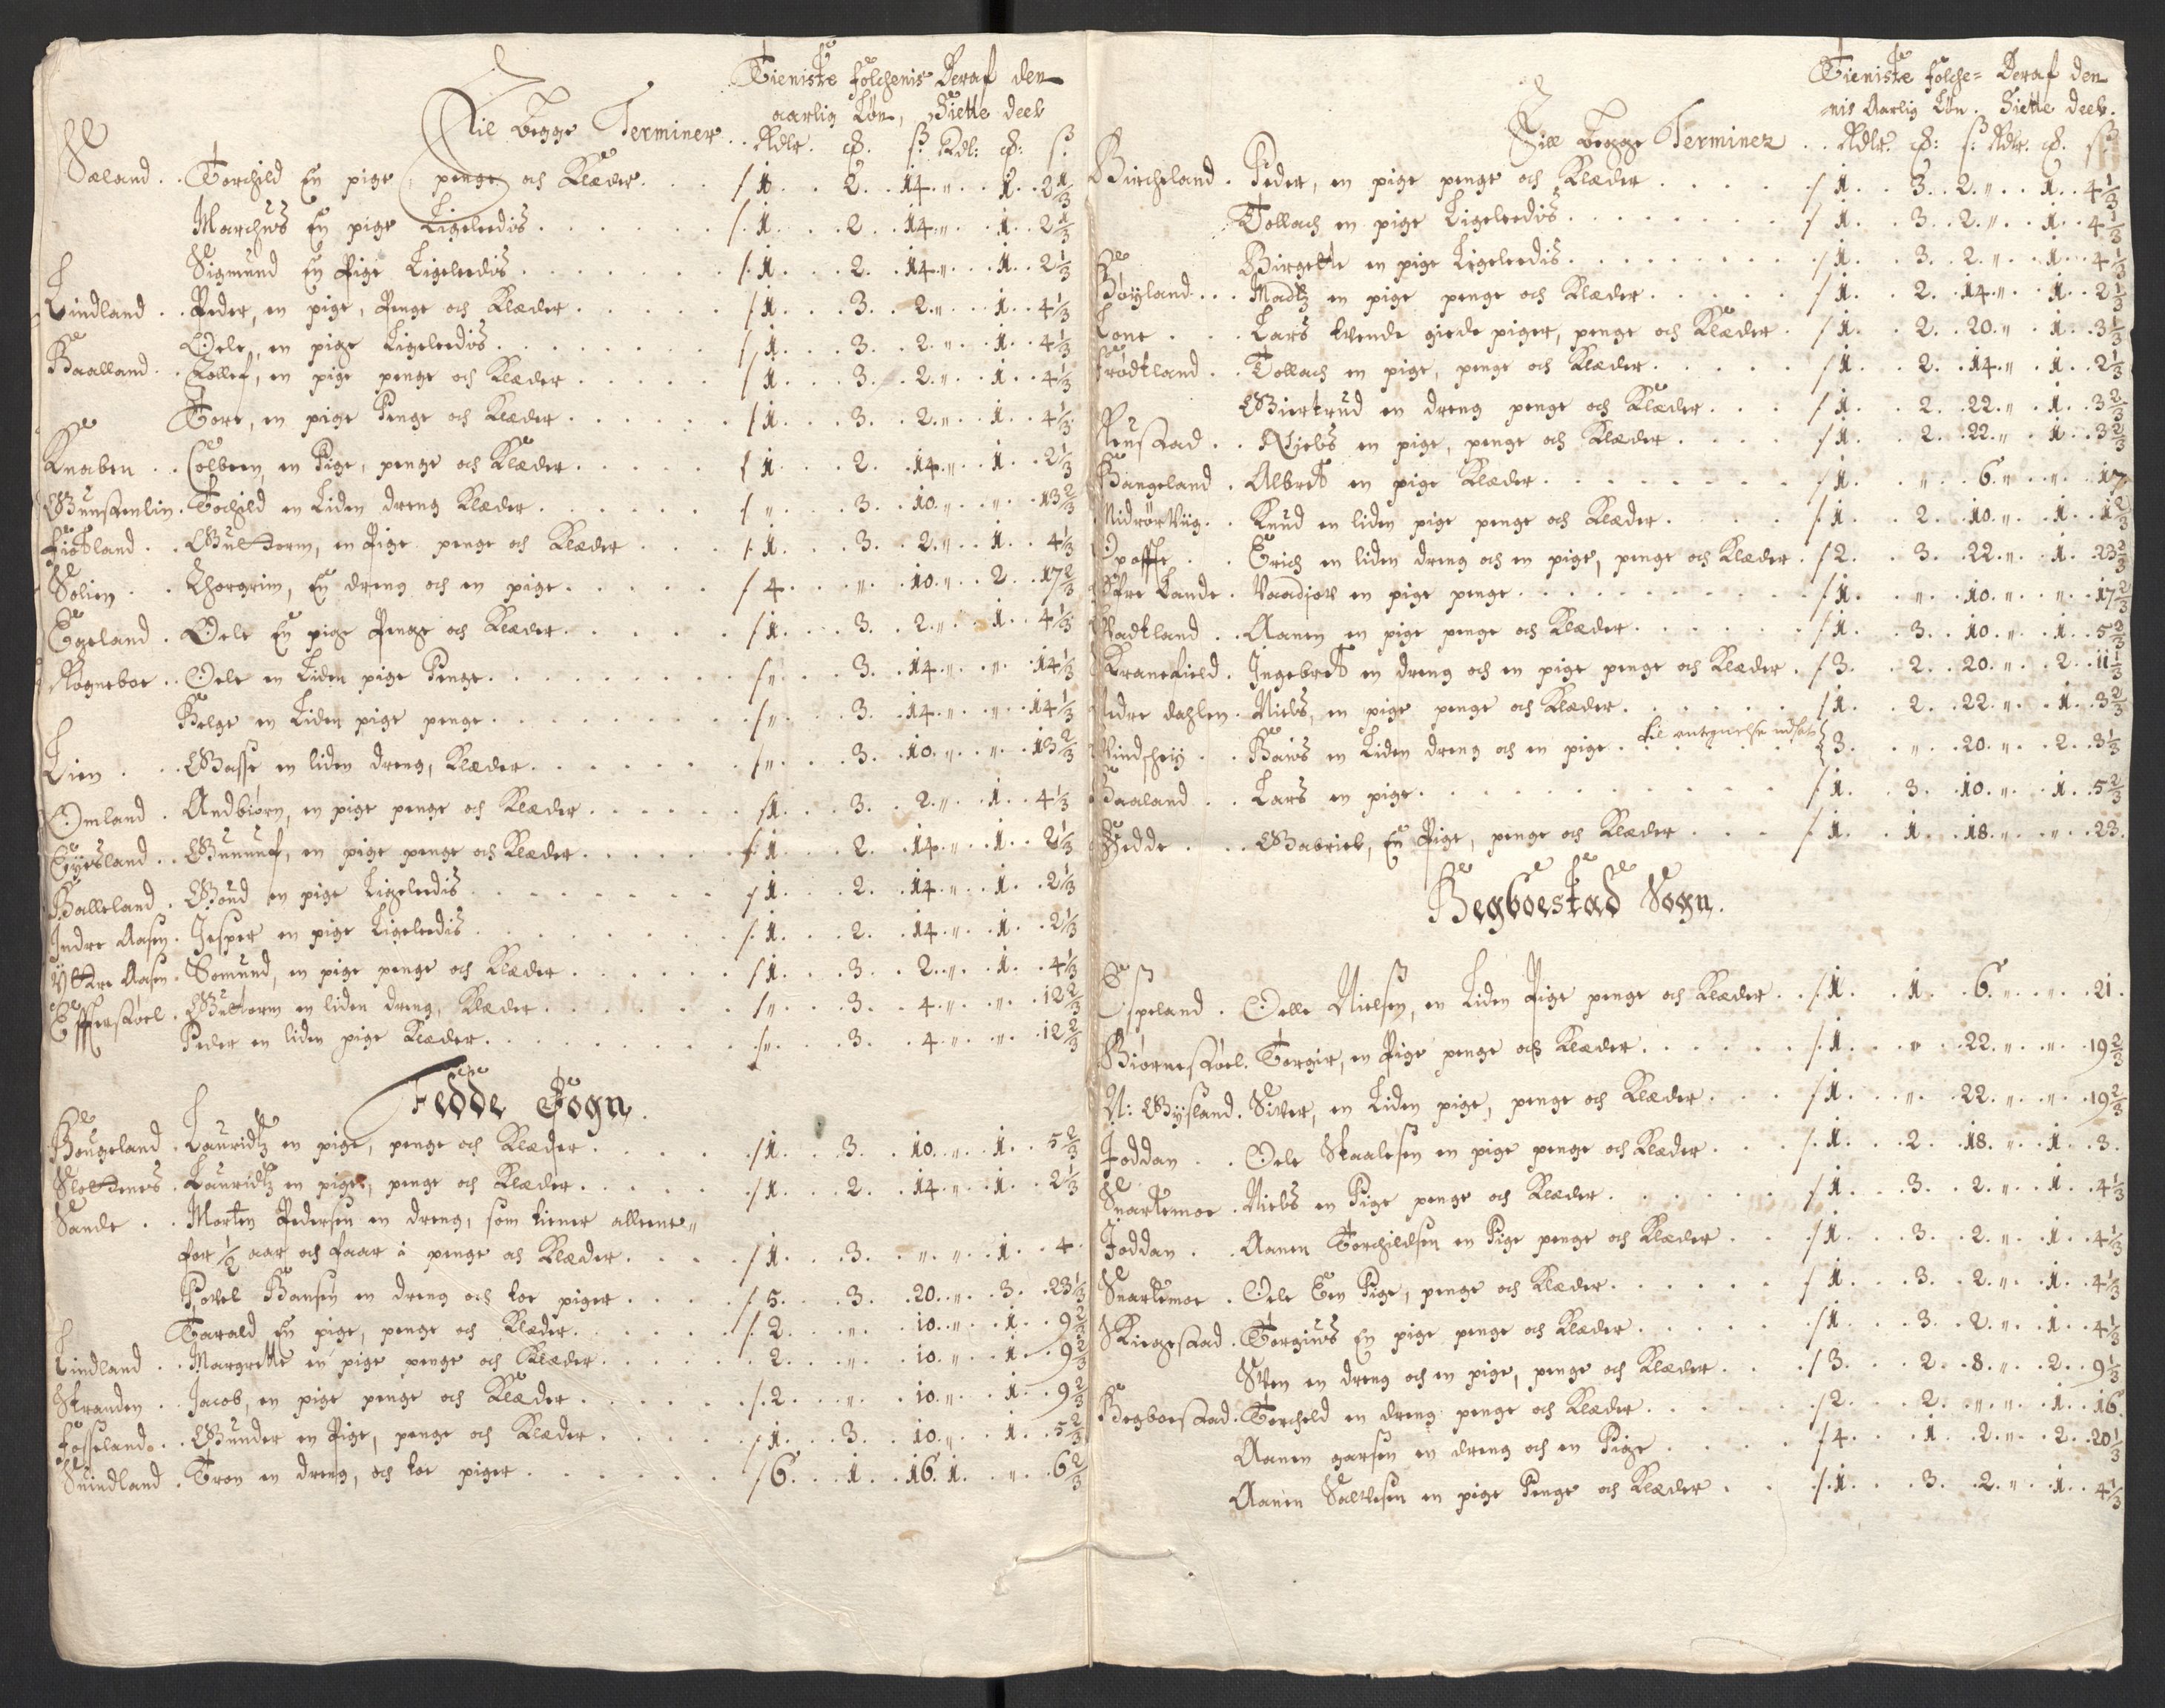 Tieniste folchenis Deraf den
aarlig Løn, Siette deel
Til begge Terminer. Rdlr. ꝏ. ß: Rdl: ꝏ: ß
Sæland. Torchild En pige, penge och Klæder. /1. 2. 14. " 1. 2 1/3
Marchus En pige Ligeledis. /1. 2. 14. " 1. 2 1/3
Sigmund En Pige Ligeledis. /1. 2. 14. " 1. 2 1/3
Lindland. Peder, en pige, Penge och Klæder. /1. 3. 2. " 1. 4 1/3
Oele, en pige Ligeledis. /1. 3. 2. " 1. 4 1/3
Haalland. Tollef, en pige penge och Klæder. /1. 3. 2. " 1. 4 1/3
Tore, en pige Penge och Klæder. /1. 3. 2. " 1. 4 1/3
Knaben. Colbeen, en Pige, penge och Klæder. /1. 2. 14. " 1. 2 1/3
Gunstenlin. Tochild en Liden dreng Klæder. / " 3. 10. " " 13 2/3
Fiotland. Guttorm, en Pige penge och Klæder. /1. 3. 2. " 1. 4 1/3
Solien. Thorgrim, En dreng och en pige. /4. " 10. " 2. 17 2/3
Egeland. Oele En pige Penge och Klæder. /1. 3. 2. " 1. 4 1/3
Røgneboe. Oele en Liden pige Penge. / " 3. 14. " " 14 1/3
Helge en Liden pige penge. / " 3. 14. " " 14 1/3
Lien. Gasse en liden dreng, Klæder. / " 3. 10. " " 13 2/3
Omland. Andbiørn, en pige penge och Klæder. /1. 3. 2. " 1. 4 1/3
Eyesland. Gunuuf, en pige penge och Klæder. /1. 2. 14. " 1. 2 1/3
Galleland. Goud en pige Ligeledis. /1. 2. 14. " 1. 2 1/3
Indre Aasen. Jesper en pige Ligeledis. /1. 2. 14. " 1. 2 1/3
Yttre Aasen. Somund, en pige penge och Klæder. /1. 3. 2. " 1. 4 1/3
Efferstøel. Guttorm en liden dreng, Klæder. / " 3. 4. " " 12 2/3
Peder en liden pige Klæder. / " 3. 4. " " 12 2/3
Fedde Sogn.
Hougeland. Lauridtz en pige, penge och Klæder. /1. 3. 10. " 1. 5 2/3
Slottenes. Lauridtz en pige, penge och Klæder. /1. 2. 14. " 1. 2 1/3
Sande. Morten Pedersen en dreng, som tiener alleene
for 1/2 aar och faar i penge och Klæder. /1. 3. " " 1. 4.
Povel Hansen en dreng och toe piger. /5. 3. 20. " 3. 23 1/3
Tarald En pige, penge och Klæder. /2. " 10. " 1. 9 2/3
Lindland. Margrette en pige penge och Klæder. 2. " 10. " 1. 9 2/3
Stranden. Jacob, en pige penge och Klæder. /2. " 10. " 1. 9 2/3
Fosseland. Gunder en Pige, penge och Klæder. /1. 3. 10. " 1. 5 2/3
Suindland. Tron en dreng, och toe piger. /6. 1. 16. 1. " 6 2/3
Tieniste folche= Deraf den
nis Aarlig Løn. Siette deel.
Till begge Terminer. Rdlr. ꝏ: ß: Rdlr. ꝏ. ß
Bircheland. Peder, en pige penge och Klæder. /1. 3. 2. " 1. 4 1/3
Tollach en pige Ligeledis. /1. 3. 2. " 1. 4 1/3
Birgette en pige Ligeledis. /1. 3. 2. " 1. 4 1/3
Høyland. Madtz en pige penge och Klæder. /1. 2. 14. " 1. 2 1/3
Lone. Lars tvende giede piger, penge och Klæder. /1. 2. 20. " 1. 3 1/3
Frødtland. Tollach en pige, penge och Klæder. /1. 2. 14. " 1. 2 1/3
Giertrud en dreng penge och Klæder. /1. 2. 22. " 1. 3 2/3
Neustad. Niels en pige, penge och Klæder. /1. 2. 22. " 1. 3 2/3
Hangeland. Albret en pige Klæder. /1. " 6. " " 17
Midrør Viig. Knud en liden pige penge och Klæder. /1. 2. 10. " 1. 1 2/3
Opofte. Erich en liden dreng och en pige, penge och Klæder. /2. 3. 22. " 1. 23 2/3
Øfre Lande. Vaadjov en pige penge. /1. " 10. " " 17 2/3
Vadtland. Aanen en pige penge och Klæder. /1. 3. 10. " 1. 5 2/3
Kranefield. Ingebret en dreng och en pige penge och Klæder. /3. 2. 20. " 2. 11 1/3
Nedre dahlen. Niels, en pige penge och Klæder. /1. 2. 22. " 1. 3 2/3
Rindsheij. Hans en Liden dreng och en pige. til antegnelse udsat 3. " 20. " 2. 3 1/3
Haaland. Lars en pige. /1. 3. 10. " 1. 5 2/3
Fedde. Gabriel, En Pige, penge och Klæder. /1. 1. 18. " " 23.
Hegboestad Sogn.
Espeland. Oelle Nielsen, en Liden Pige penge och Klæder. /1. 1. 6. " " 21.
Biørnestøel. Torgir, en Pige penge och Klæder. /1. " 22. " " 19 2/3
N: Gysland. Siver, en Liden pige, penge och Klæder. /1. " 22. " " 19 2/3
Joddan. Oele Staalesen en pige penge och Klæder. /1. 2. 18. " 1. 3.
Snartemoe. Niels en Pige penge och Klæder. /1. 3. 2. " 1. 4 1/3
Joddan. Aanen Torchildsen en Pige penge och Klæder. /1. 3. 2. " 1. 4 1/3
Snartemoe. Oele Een Pige, penge och Klæder. /1. 3. 2. " 1. 4 1/3
Skiegestad. Torgius En pige penge och Klæder. /1. 3. 2. " 1. 4 1/3
Sven en dreng och en pige, penge och Klæder. /3. 2. 8. " 2. 9 1/3
Hegboestad. Torcheld en dreng penge och Klæder. /2. 2. " " 1. 16.
Aanen garsen en dreng och en Pige. /4. 1. 2. " 2. 20 1/3
Aanen Salvesen en pige Penge och Klæder. /1. 3. 2. " 1. 4 1/3